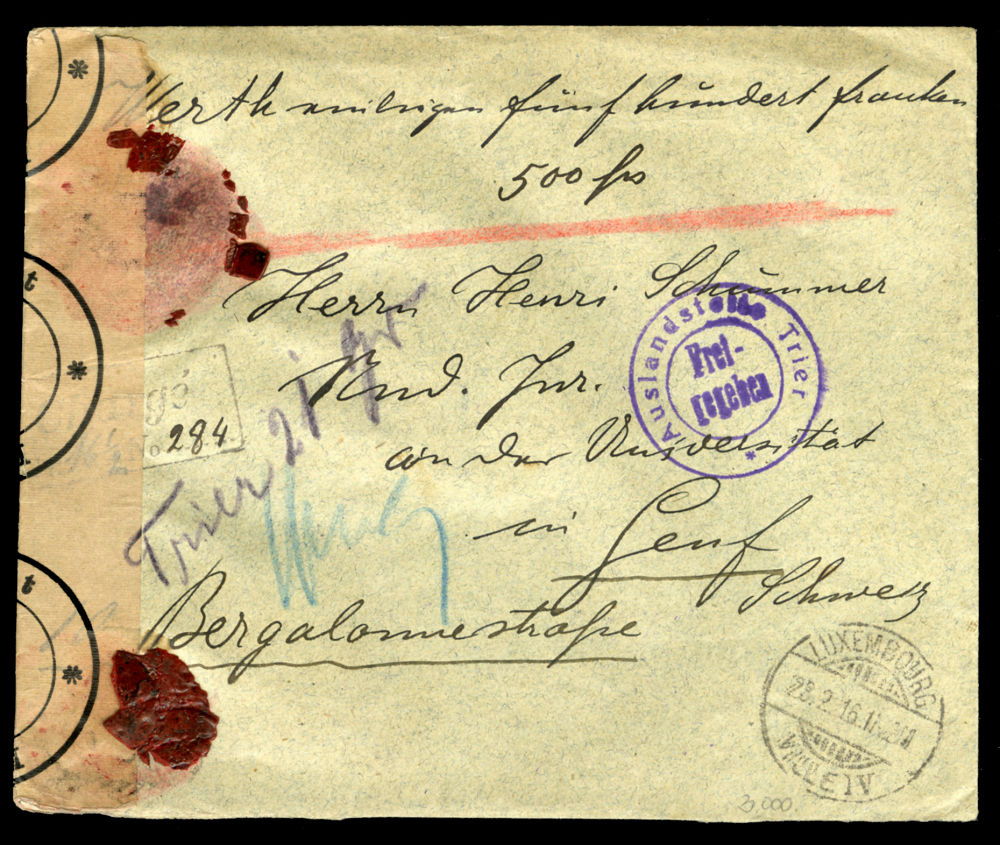 Werth fünfhundert franken
500 frs
Herrn Henri Schummer
Jur.
an der Universität
in Genf
Schweiz
Bergalonnestraße
Auslandstelle Trier
Frei-
gegeben
284
Trier 21 gr
LUXEMBOURG
23.2.16
VILLE IV
20,000